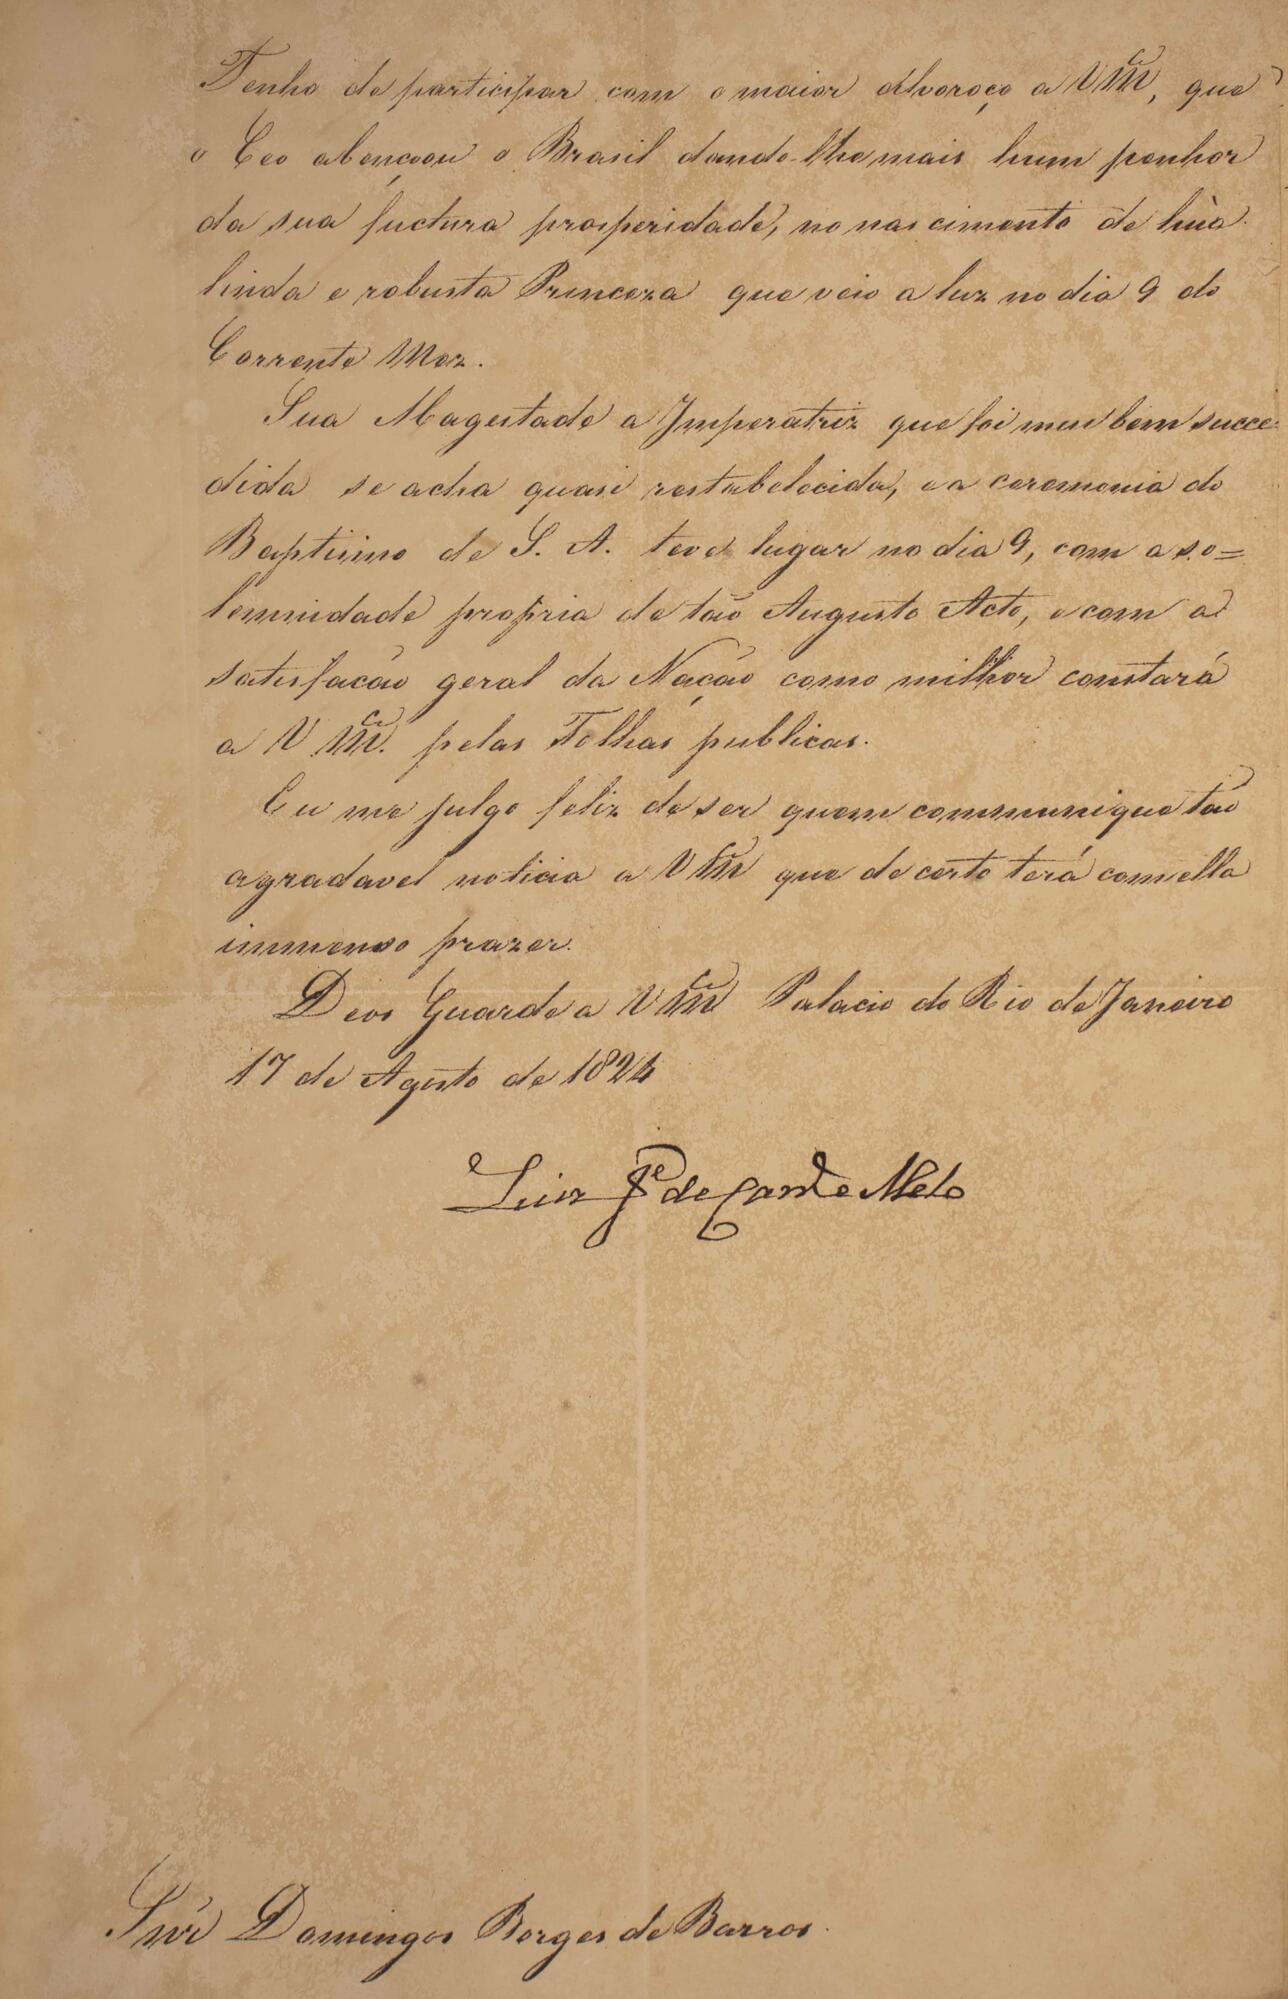 Tenho de participar com o maior alvoroço a V M.ce, que
o Ceo abençoou o Brasil dando-lhe mais hum penhor
da sua fuctura prosperidade, no nascimento de hũa
linda e robusta Princeza que veio a luz no dia 9 do
Corrente Mez.
Sua Magestade a Imperatriz que foi mui bem succe-
dida se acha quasi restabelecida, e a ceremonia do
Baptismo de S. A. teve lugar no dia 9, com a so=
lemnidade propria de tão Augusto Acto, e com a
satisfacão geral da Nação como milhor constará
a V M.ce pelas Folhas publicas.
Eu me julgo feliz de ser quem communique tão
agradavel noticia a V M.ce que de certo terá com ella
immenso prazer.
Deos Guarde a V M.ce Palacio do Rio de Janeiro
17 de Agosto de 1824
Luiz Je de Carv.o e Mello
Snr Domingos Borges de Barros.